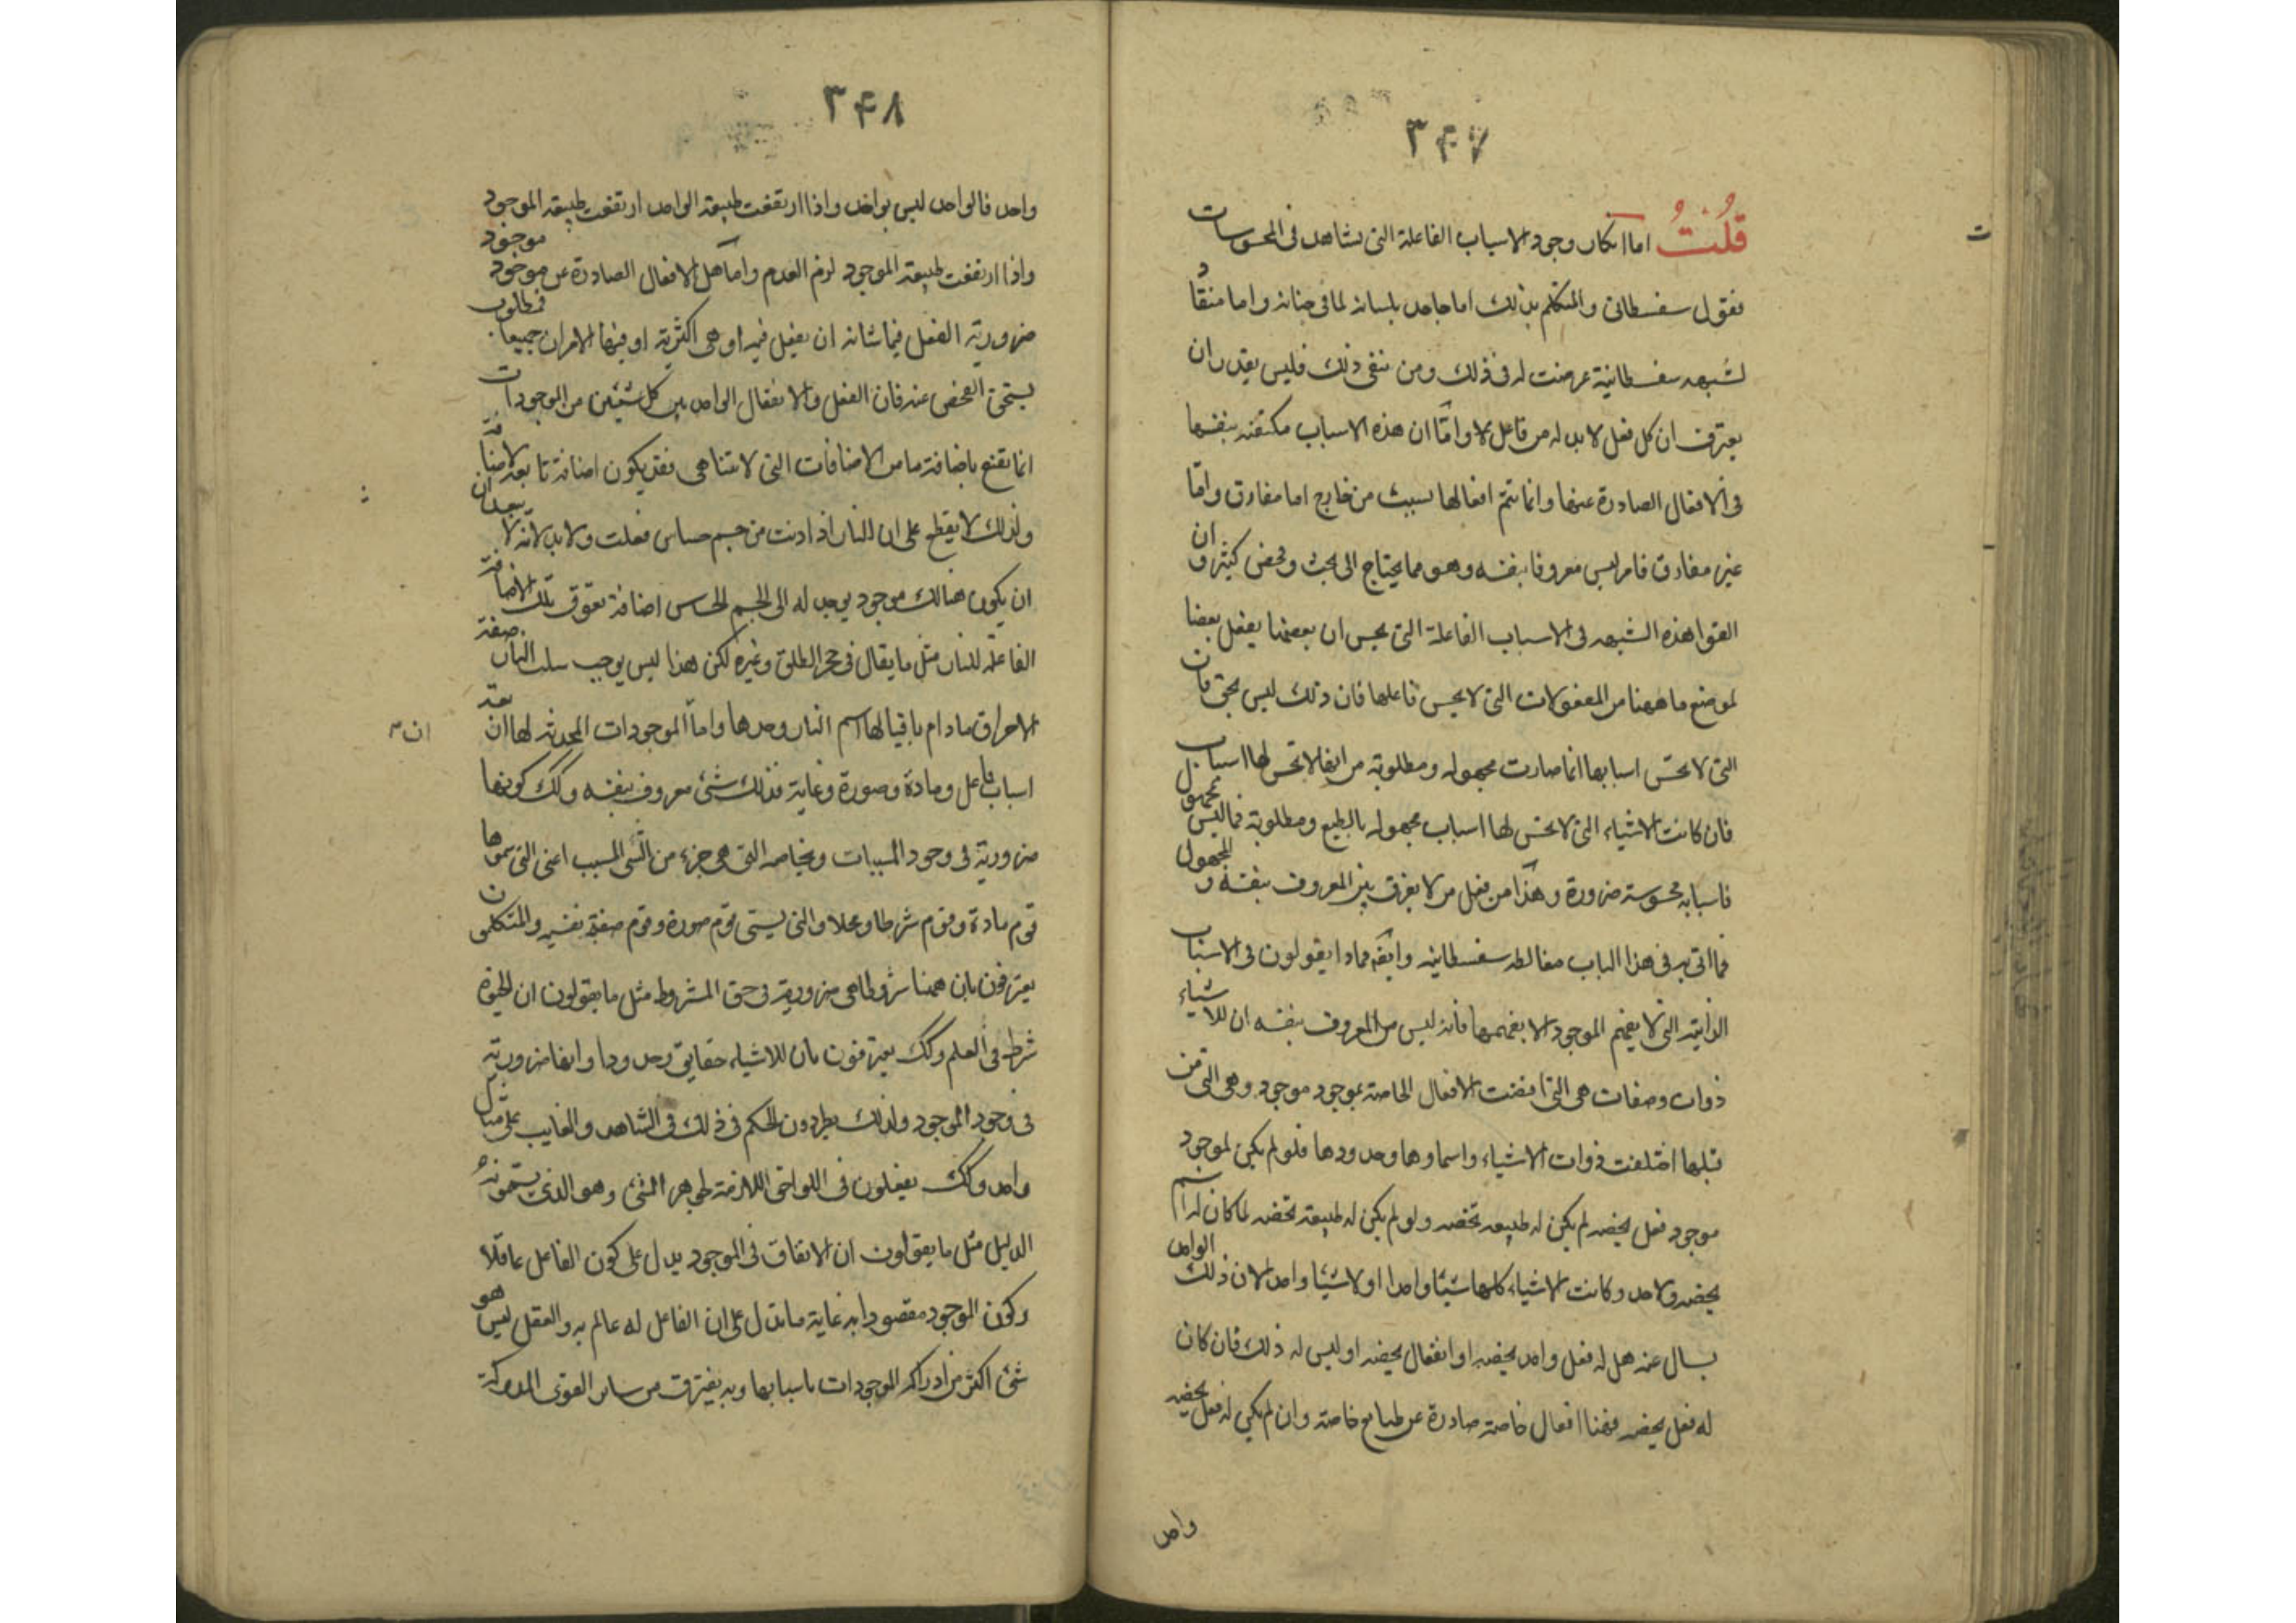 ٣٤٧
قُلْتُ اما انكار وجود الاسباب الفاعلة التى تشاهد فى المحسوسات
فقول سفسطائى والمتكلم بذلك اما جاحد بلسانه لما فى جنانه واما منقاد
لشبهه سفسطائية عرضت له فى ذلك ومن ينفى ذلك فليس يقدر ان
يعترف ان كل فعل لا بد له من فاعل واما ان هذه الاسباب مكتفيه بنفسها
فى الافعال الصادرة عنها وانما تتم افعالها بسبب من خارج اما مفارق واما
غير مفارق فامر ليس معروفا بنفسه وهو مما يحتاج الى بحث وفحص كثير وان
الفوا هذه الشبهه فى الاسباب الفاعلة التى يحس ان بعضها يفعل بعضا
لموضع ما ههنا من المفعولات التى لا يحس فاعلها فان ذلك ليس بحق فان
التى لا تحس اسبابها انما صارت مجهوله ومطلوبة من انها لا تحس لها اسباب
فان كانت الاشياء التى لا تحس لها اسباب مجهوله بالطبع ومطلوبة فما ليس بمجهول
فاسبابه محسوسة ضرورة وهذا من فعل من لا يفرق بين المعروف بنفسه والمجهول
فما اتى به فى هذا الباب مغالطه سفسطائيه وايضا فماذا يقولون فى الاسباب
الذاتية التى لا يفهم الموجود الا بفهمها فانه ليس من المعروف بنفسه ان للاشياء
ذوات وصفات هى التى اقتضت الافعال الخاصة بموجود موجود وهى التى من
قبلها اختلفت ذوات الاشياء واسماوها وحدودها فلو لم يكن لموجود
موجود فعل يخصه لم يكن له طبيعه تخصه ولو لم يكن له طبيعة تخصه لما كان له اسم
يخصه ولا حد وكانت الاشياء كلها شيئا واحدا او لا شيئا واحدا لان ذلك الواحد
يسال عنه هل له فعل واحد يخصه او انفعال يخصه او ليس له ذلك فان كان
له فعل يخصه فهنا افعال خاصة صادرة عن طبايع خاصة وان لم يكن له فعل يخصه
واحد
ت
٣٤٨
واحد فالواحد ليس بواحد واذا ارتفعت طبيعة الواحد ارتفعت طبيعة الموجود
واذا ارتفعت طبيعة الموجود لزم العدم واما هل الافعال الصادرة عن موجود موجود
ضرورية الفعل فيما شانه ان يفعل فيه او هى اكثرية او فيها الامران جميعا فمطلوب
يستحق الفحص عنه فان الفعل والانفعال الواحد بين كل شيئين من الموجودات
انما يقع باضافة ما من الاضافات التى لا تتناهى فقد يكون اضافة تابعه لاضافة
ولذلك لا يقطع على ان النار اذا دنت من جسم حساس فعلت ولا بد لانه لا يبعد ان
ان يكون هنالك موجود يوجد له الى الجسم الحساس اضافة تعوق تلك الاضافة
الفاعلة للنار مثل ما يقال فى حجر الطلق وغيره لكن هذا ليس يوجب سلب النار صفة
الاحراق ما دام باقيا لها اسم النار وحدها واما الموجودات المحدثة لها اربعة
اسباب فاعل ومادة وصورة وغاية فذلك شئ معروف بنفسه وكك كونها
ضرورية فى وجود المسببات وبخاصه التى هى جزء من الشى المسبب اعنى التى سموها
قوم مادة وقوم شرطا ومحلا والتى يسمى قوم صورة وقوم صفة نفسيه والمتكلمون
يعترفون بان ههنا شروطا هى ضرورية فى حق المشروط مثل ما يقولون ان الحيوة
شرط فى العلم وكك يعترفون بان للاشياء حقايق وحدودا وانها ضرورية
فى وجود الموجود ولذلك يطردون الحكم فى ذلك فى الشاهد والغايب على مثال
واحد وكك يفعلون فى اللواحق اللازمة لجوهر الشئ وهو الذى يسمونه
الدليل مثل ما يقولون ان الاتقان فى الموجود يدل على كون الفاعل عاقلا
وكون الموجود مقصودا به غاية ما تدل على ان الفاعل له عالم به والعقل ليس هو
شئ اكثر من ادراك الموجودات باسبابها وبه يفترق من ساير القوى المدركة